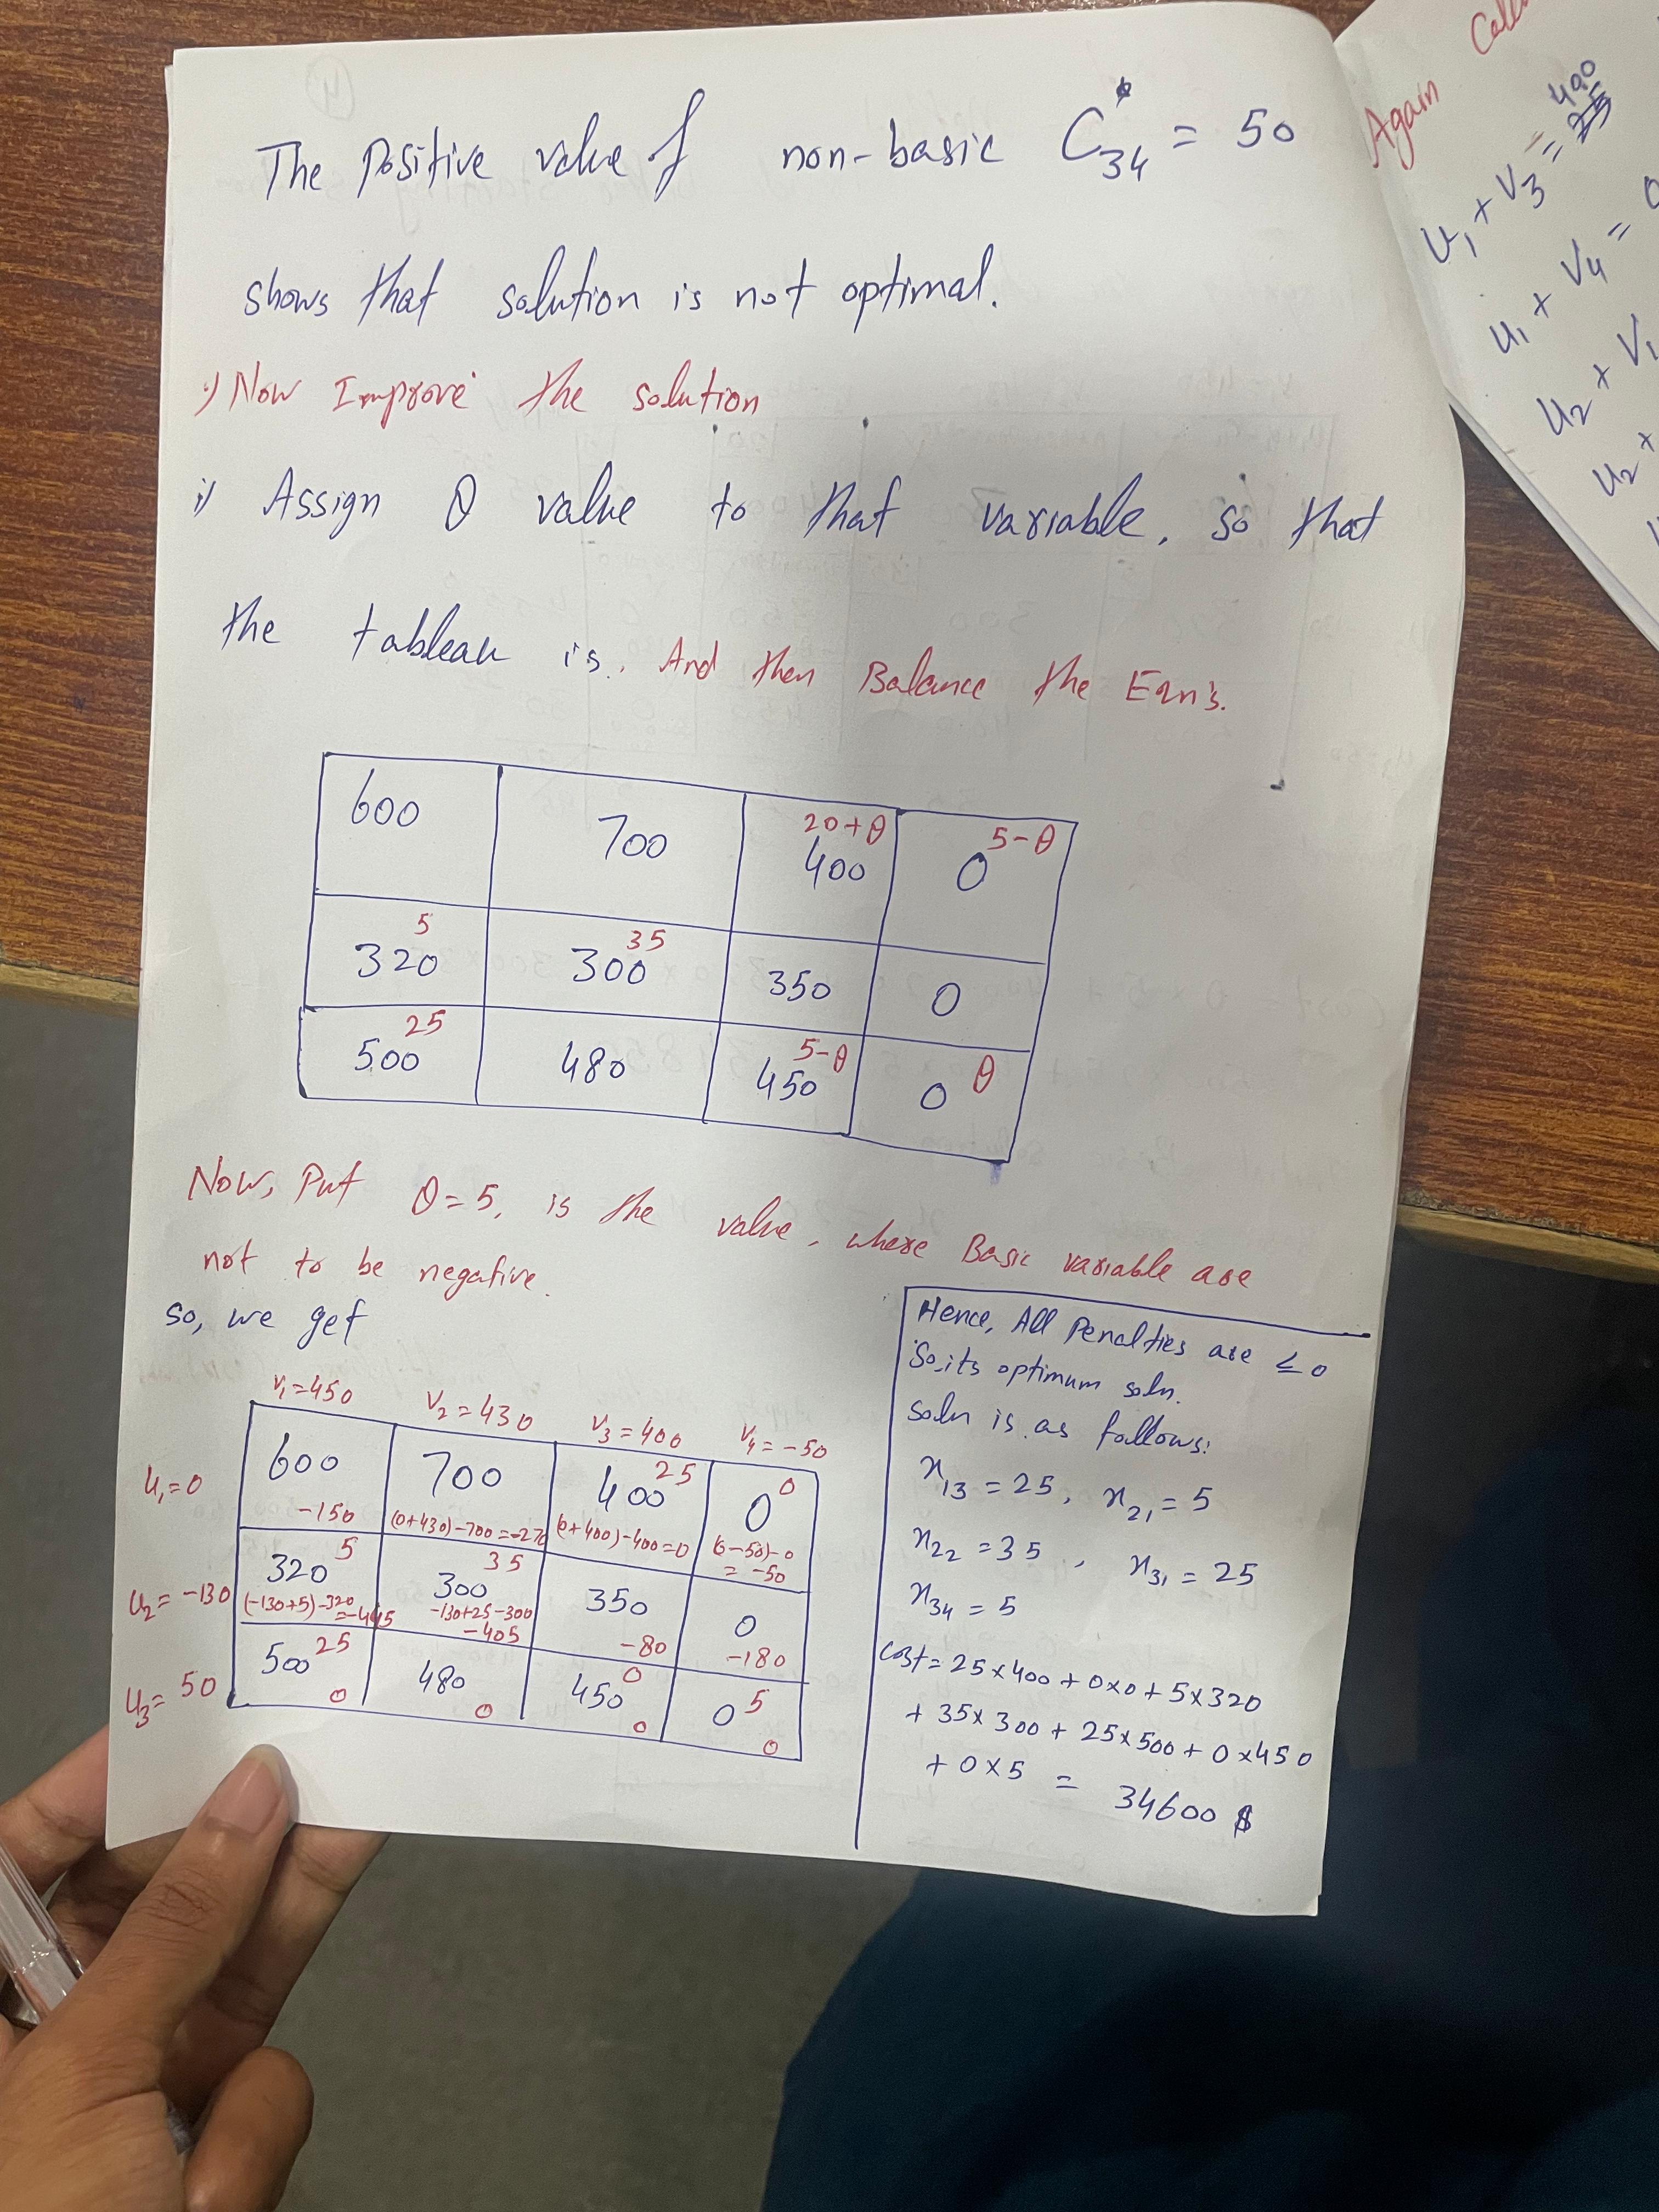 The Positive value of non-basic C34 = 50
shows that solution is not optimal.
Now Improve the solution
i) Assign θ value to that variable, so that
the tableau is. And then Balance the Eqn's.
600 700 20+θ 400 5-θ 0
5 320 35 300 350 0
25 500 480 5-θ 450 θ 0
Now, Put θ=5, is the value, where Basic variable are
not to be negative.
so, we get
V1=450 V2=430 V3=400 V4=-50
U1=0
600 700 400 25 0 0
-150 (0+430)-700=-270 (0+400)-400=0 (0-50)-0
= -50
U2=-130
320 5 300 35 350 0
(-130+5)-320 -130+25-300
=-445 -405 -80 -180
U3=50
500 25 480 450 0 0 5
0 0 0 0
Hence, All Penalties are ≤0
So, its optimum soln.
Soln is as follows:
x13 = 25, x21 = 5
x22 = 35, x31 = 25
x34 = 5
Cost = 25×400 + 0×0 + 5×320
+ 35×300 + 25×500 + 0×450
+ 0×5 = 34600 $
Again
U1 + V3 = 400
U1 + V4 = 0
U2 + V1
U2 +